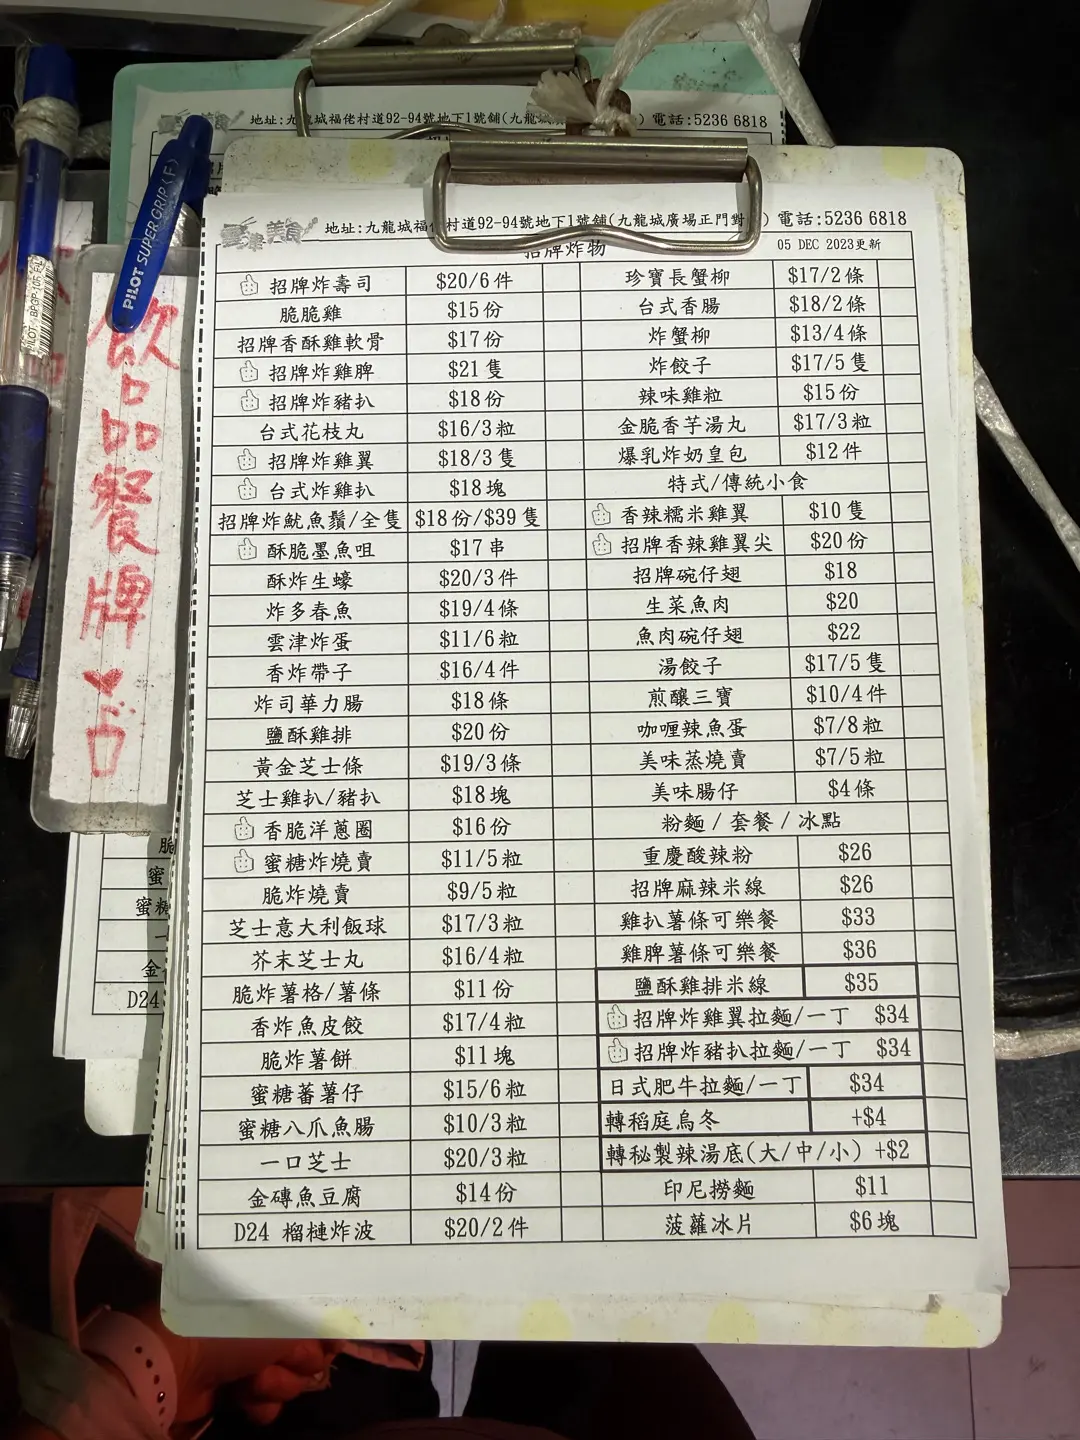 地址:九龍城福佬村道92-94號地下1號舖(九龍城 ) 電話:5236 6818
雲津美食 地址:九龍城福佬村道92-94號地下1號舖(九龍城廣場正門對 ) 電話:5236 6818
招牌炸物 05 DEC 2023更新
招牌炸壽司 $20/6件
脆脆雞 $15份
招牌香酥雞軟骨 $17份
招牌炸雞脾 $21隻
招牌炸豬扒 $18份
台式花枝丸 $16/3粒
招牌炸雞翼 $18/3隻
台式炸雞扒 $18塊
招牌炸魷魚鬚/全隻 $18份/$39隻
酥脆墨魚咀 $17串
酥炸生蠔 $20/3件
炸多春魚 $19/4條
雲津炸蛋 $11/6粒
香炸帶子 $16/4件
炸司華力腸 $18條
鹽酥雞排 $20份
黃金芝士條 $19/3條
芝士雞扒/豬扒 $18塊
香脆洋蔥圈 $16份
蜜糖炸燒賣 $11/5粒
脆炸燒賣 $9/5粒
芝士意大利飯球 $17/3粒
芥末芝士丸 $16/4粒
脆炸薯格/薯條 $11份
香炸魚皮餃 $17/4粒
脆炸薯餅 $11塊
蜜糖蕃薯仔 $15/6粒
蜜糖八爪魚腸 $10/3粒
一口芝士 $20/3粒
金磚魚豆腐 $14份
D24 榴槤炸波 $20/2件
珍寶長蟹柳 $17/2條
台式香腸 $18/2條
炸蟹柳 $13/4條
炸餃子 $17/5隻
辣味雞粒 $15份
金脆香芋湯丸 $17/3粒
爆乳炸奶皇包 $12件
特式/傳統小食
香辣糯米雞翼 $10隻
招牌香辣雞翼尖 $20份
招牌碗仔翅 $18
生菜魚肉 $20
魚肉碗仔翅 $22
湯餃子 $17/5隻
煎釀三寶 $10/4件
咖喱辣魚蛋 $7/8粒
美味蒸燒賣 $7/5粒
美味腸仔 $4條
粉麵 / 套餐 / 冰點
重慶酸辣粉 $26
招牌麻辣米線 $26
雞扒薯條可樂餐 $33
雞脾薯條可樂餐 $36
鹽酥雞排米線 $35
招牌炸雞翼拉麵/一丁 $34
招牌炸豬扒拉麵/一丁 $34
日式肥牛拉麵/一丁 $34
轉稻庭烏冬 +$4
轉秘製辣湯底(大/中/小) +$2
印尼撈麵 $11
菠蘿冰片 $6塊
飲品餐牌
PILOT SUPER GRIP(F)
PILOT
D24